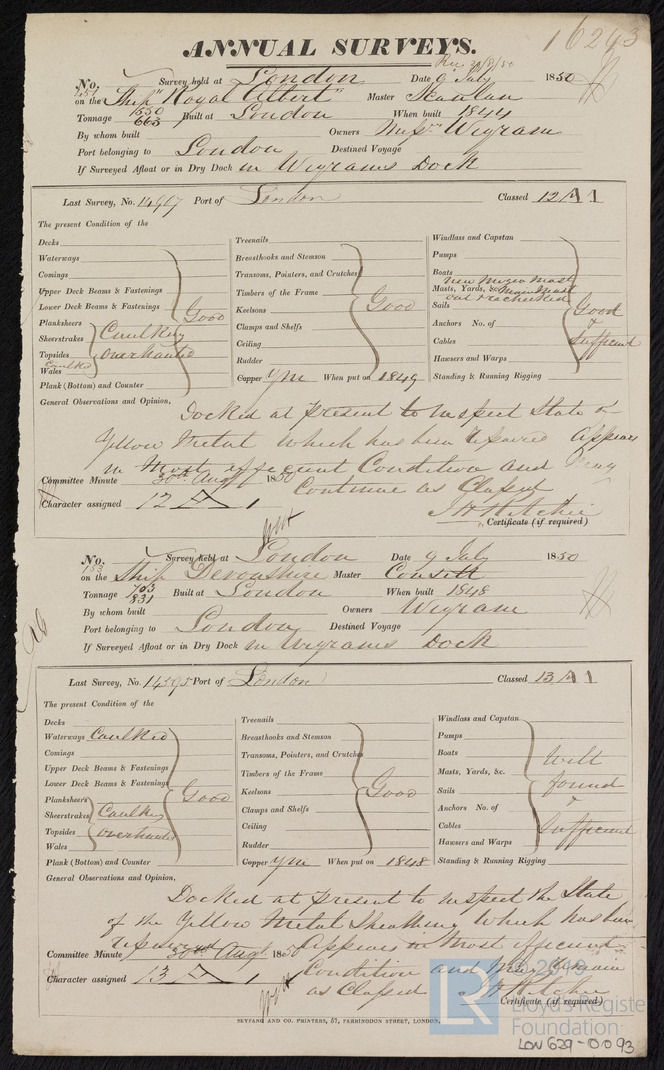 16293
ANNUAL SURVEYS.
No. 181 Survey held at London Date 9 July 1850
on the Ship "Royal Albert" Master Scanlan
Tonnage 550 663 Built at London When built 1844
By whom built Owners Messrs Wigram
Port belonging to London Destined Voyage
If Surveyed Afloat or in Dry Dock in Wigrams Dock
Last Survey, No. 14967 Port of London Classed 12 A 1
The present Condition of the
Decks
Waterways
Comings
Upper Deck Beams & Fastenings
Lower Deck Beams & Fastenings
Good
Planksheers
Sheerstrakes
Caulking
Topsides
overhauled
Caulked
Wales
Plank (Bottom) and Counter
Treenails
Breasthooks and Stemson
Transoms, Pointers, and Crutches
Timbers of the Frame
Keelsons
Good
Clamps and Shelfs
Ceiling
Rudder
Copper YM When put on 1849
Windlass and Capstan
Pumps
Boats
New Mizen Mast
Masts, Yards, &c. Main Mast
out & rechecked
Sails
Good
Anchors No. of
&
Cables
sufficient
Hawsers and Warps
Standing & Running Rigging
General Observations and Opinion,
Docked at present to inspect State of
Yellow Metal which has been repaired appears
in most efficient Condition and may
Continue as Classed
Committee Minute 30th Augt 1850
Character assigned 12 A 1
J H Ritchie
Certificate (if required)
No. 183 Survey held at London Date 9 July 1850
on the Ship Devonshire Master Consitt
Tonnage 703 831 Built at London When built 1848
By whom built Owners Wigram
Port belonging to London Destined Voyage
If Surveyed Afloat or in Dry Dock in Wigrams Dock
Last Survey, No. 14595 Port of London Classed 13 A 1
The present Condition of the
Decks
Waterways Caulked
Comings
Upper Deck Beams & Fastenings
Lower Deck Beams & Fastenings
Good
Planksheers
Sheerstrakes
Caulking
Topsides
overhauled
Wales
Plank (Bottom) and Counter
Treenails
Breasthooks and Stemson
Transoms, Pointers, and Crutches
Timbers of the Frame
Keelsons
Good
Clamps and Shelfs
Ceiling
Rudder
Copper YM When put on 1848
Windlass and Capstan
Pumps
Boats
Well
Masts, Yards, &c.
found
Sails
&
Anchors No. of
Cables
Sufficient
Hawsers and Warps
Standing & Running Rigging
General Observations and Opinion,
Docked at present to inspect the State
of the Yellow Metal Sheathing which has been
repaired appears in most efficient
Condition and may remain
as Classed
Committee Minute 30th Augt. 1850
Character assigned 13 A 1
J H Ritchie
Certificate (if required)
SEYFANG AND CO. PRINTERS, 57, FARRINGDON STREET, LONDON.
© 2019
LR
Lloyd's Register
Foundation
LON 629-0093